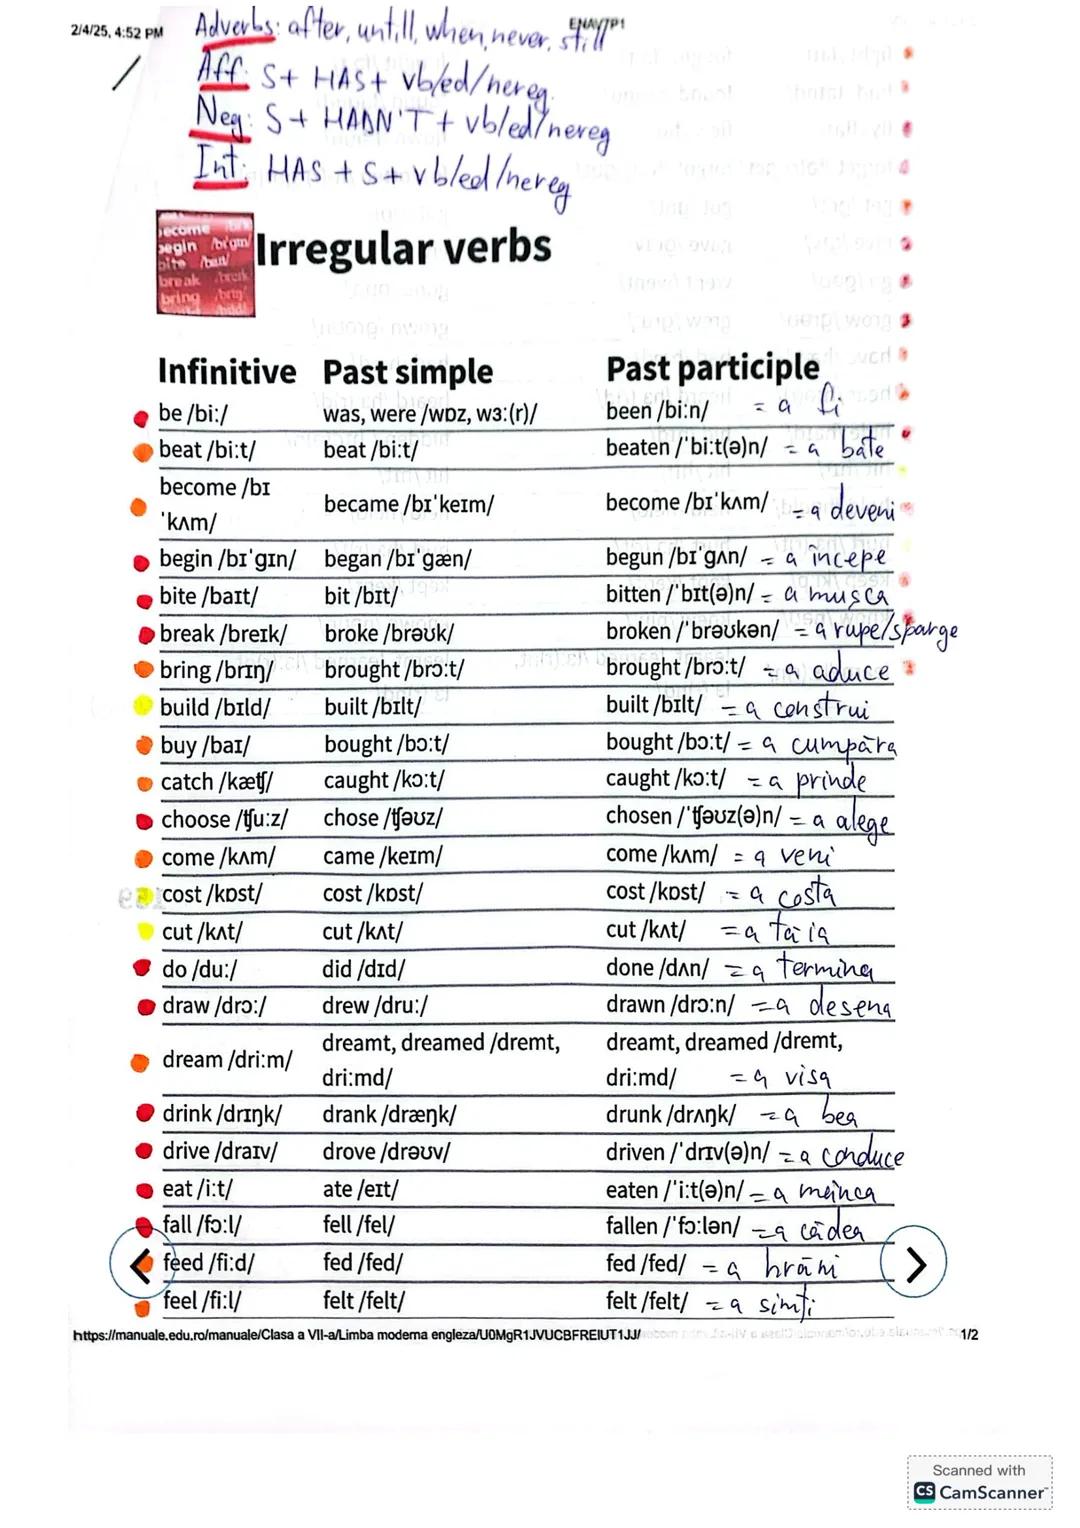 2/4/25, 4:52 PM
ENAV7P1
Adverbs: after, untill, when, never, still
Aff: S+ HAS+ vb/ed/nereg.
Neg: S+ HADN'T + vb/ed/nereg
Int: HAS + S + vb/ed/nereg
Irregular verbs
Infinitive Past simple Past participle
be /biː/ was, were /wɒz, wɜː(r)/ been /biːn/ = a fi
beat /biːt/ beat /biːt/ beaten /ˈbiːt(ə)n/ = a bate
become /bɪ
ˈkʌm/ became /bɪˈkeɪm/ become /bɪˈkʌm/ = a deveni
begin /bɪˈɡɪn/ began /bɪˈɡæn/ begun /bɪˈɡʌn/ = a începe
bite /baɪt/ bit /bɪt/ bitten /ˈbɪt(ə)n/ = a mușca
break /breɪk/ broke /brəʊk/ broken /ˈbrəʊkən/ = a rupe/sparge
bring /brɪŋ/ brought /brɔːt/ brought /brɔːt/ = a aduce
build /bɪld/ built /bɪlt/ built /bɪlt/ = a construi
buy /baɪ/ bought /bɔːt/ bought /bɔːt/ = a cumpăra
catch /kætʃ/ caught /kɔːt/ caught /kɔːt/ = a prinde
choose /tʃuːz/ chose /tʃəʊz/ chosen /ˈtʃəʊz(ə)n/ = a alege
come /kʌm/ came /keɪm/ come /kʌm/ = a veni
cost /kɒst/ cost /kɒst/ cost /kɒst/ = a costa
cut /kʌt/ cut /kʌt/ cut /kʌt/ = a tăia
do /duː/ did /dɪd/ done /dʌn/ = a termina
draw /drɔː/ drew /druː/ drawn /drɔːn/ = a desena
dream /driːm/ dreamt, dreamed /dremt, dreamt, dreamed /dremt,
driːmd/ driːmd/ = a visa
drink /drɪŋk/ drank /dræŋk/ drunk /drʌŋk/ = a bea
drive /draɪv/ drove /drəʊv/ driven /ˈdrɪv(ə)n/ = a conduce
eat /iːt/ ate /eɪt/ eaten /ˈiːt(ə)n/ = a mânca
fall /fɔːl/ fell /fel/ fallen /ˈfɔːlən/ = a cădea
feed /fiːd/ fed /fed/ fed /fed/ = a hrăni
feel /fiːl/ felt /felt/ felt /felt/ = a simți
https://manuale.edu.ro/manuale/Clasa a VII-a/Limba moderna engleza/U0MgR1JVUCBFREIUT1JJ/
1/2
Scanned with
CS CamScanner